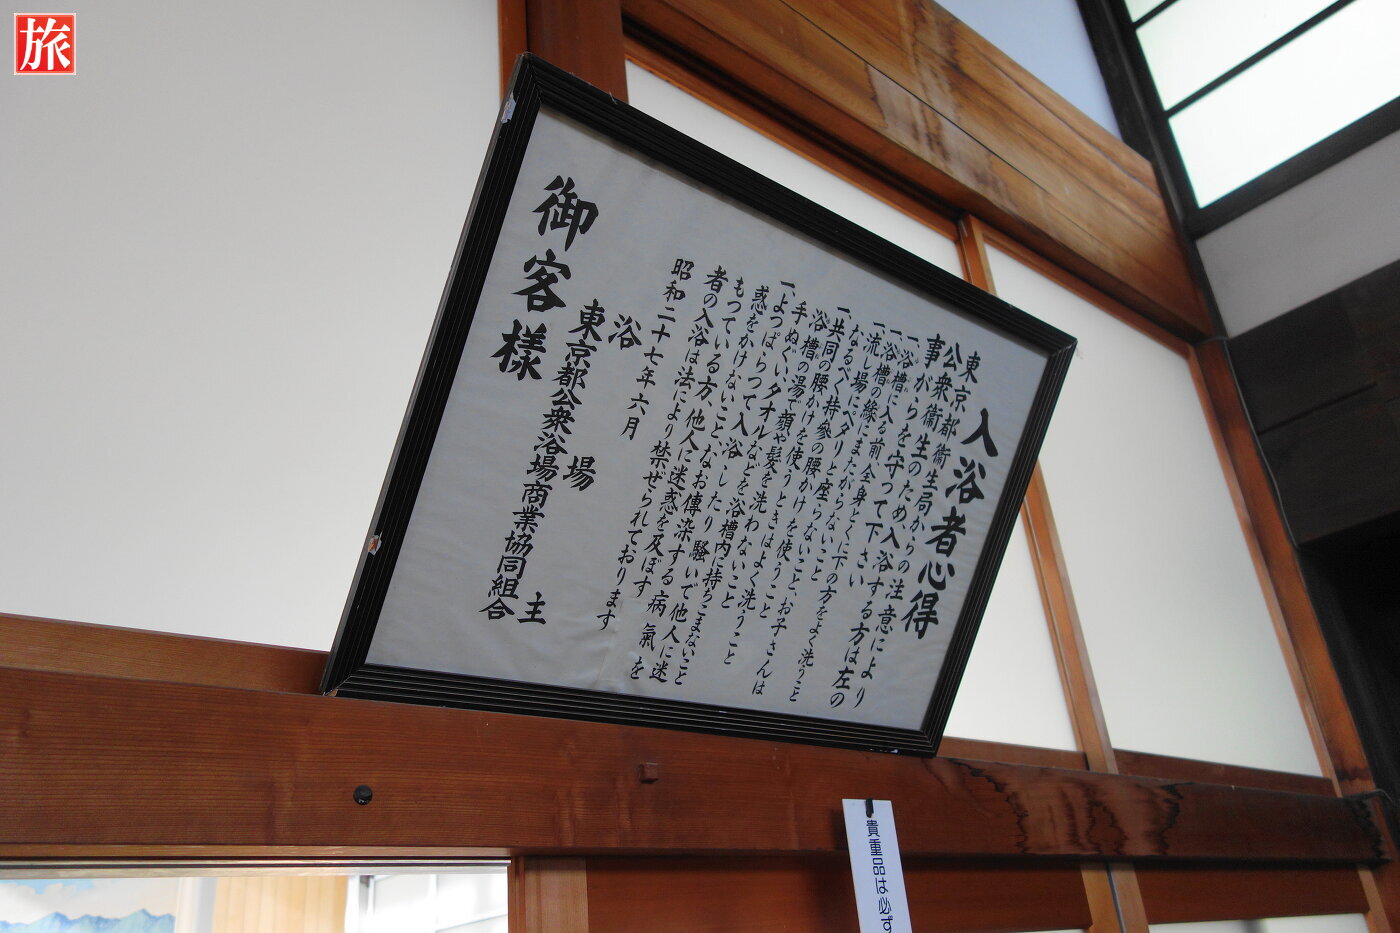 旅
入浴者心得
東京都衞生局からの注意により
公衆衞生のため、入浴する方は左の
事がらを守つて下さい
一、浴槽に入る前、全身とくに下の方をよく洗うこと
一、浴槽の縁にまたがらないこと
一、流し場にペタリと座らないこと
なるべく持參の腰かけを使うこと、お子さんは
一、共同の腰かけを使うときはよく洗うこと
浴槽の湯で顔や髪を洗わないこと
手ぬぐいタオルなどを浴槽内に持ちこまないこと
一、よつぱらつて入浴したり騒いで他人に迷
惑をかけないこと、なお傳染する病氣を
もつている方、他人に迷惑を及ぼす
者の入浴は法により禁ぜられております
昭和二十七年六月
浴場主
東京都公衆浴場商業協同組合
御客様
貴重品は必ず